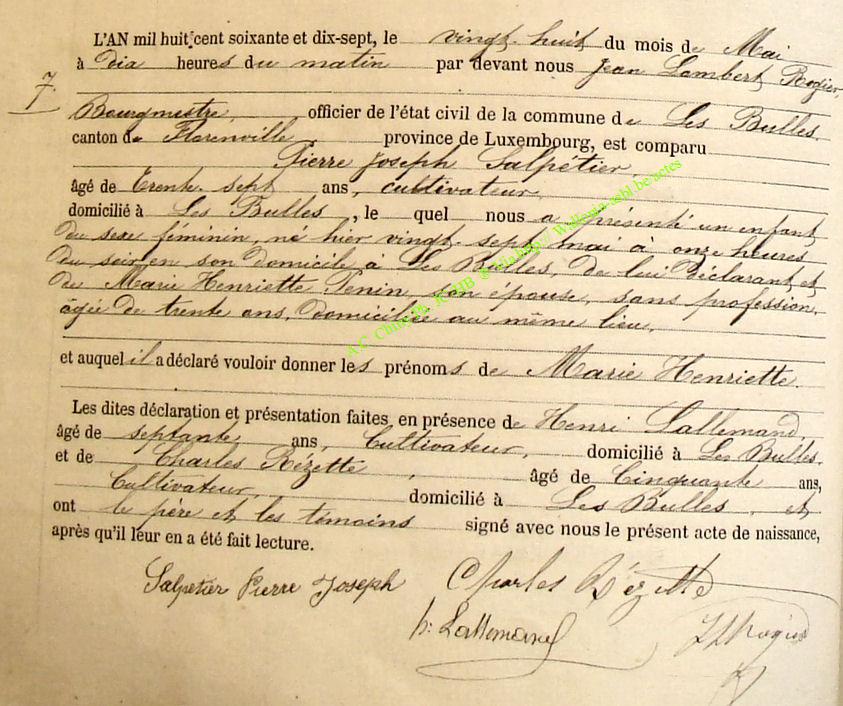 L'AN mil huit cent soixante et dix-sept, le vingt-huit du mois de Mai
à dix heures du matin par devant nous Jean Lambert Rogier,
7.
Bourgmestre, officier de l'état civil de la commune de Les Bulles,
canton de Florenville province de Luxembourg, est comparu
Pierre Joseph Salpétier,
âgé de trente-sept ans, cultivateur,
domicilié à Les Bulles, le quel nous a présenté un enfant
du sexe féminin, né hier vingt-sept mai à onze heures
du soir en son domicile à Les Bulles, de lui déclarant et
de Marie Henriette Penin, son épouse, sans profession,
âgée de trente ans, domiciliée au même lieu,
et auquel il a déclaré vouloir donner les prénoms de Marie Henriette.
Les dites déclaration et présentation faites en présence de Henri Lallemand,
âgé de septante ans, Cultivateur, domicilié à Les Bulles,
et de Charles Rézette, âgé de Cinquante ans,
Cultivateur, domicilié à Les Bulles, et
ont le père et les témoins signé avec nous le présent acte de naissance,
après qu'il leur en a été fait lecture.
Salpetier Pierre Joseph Charles Rézette
h: Lallemand JLRogier